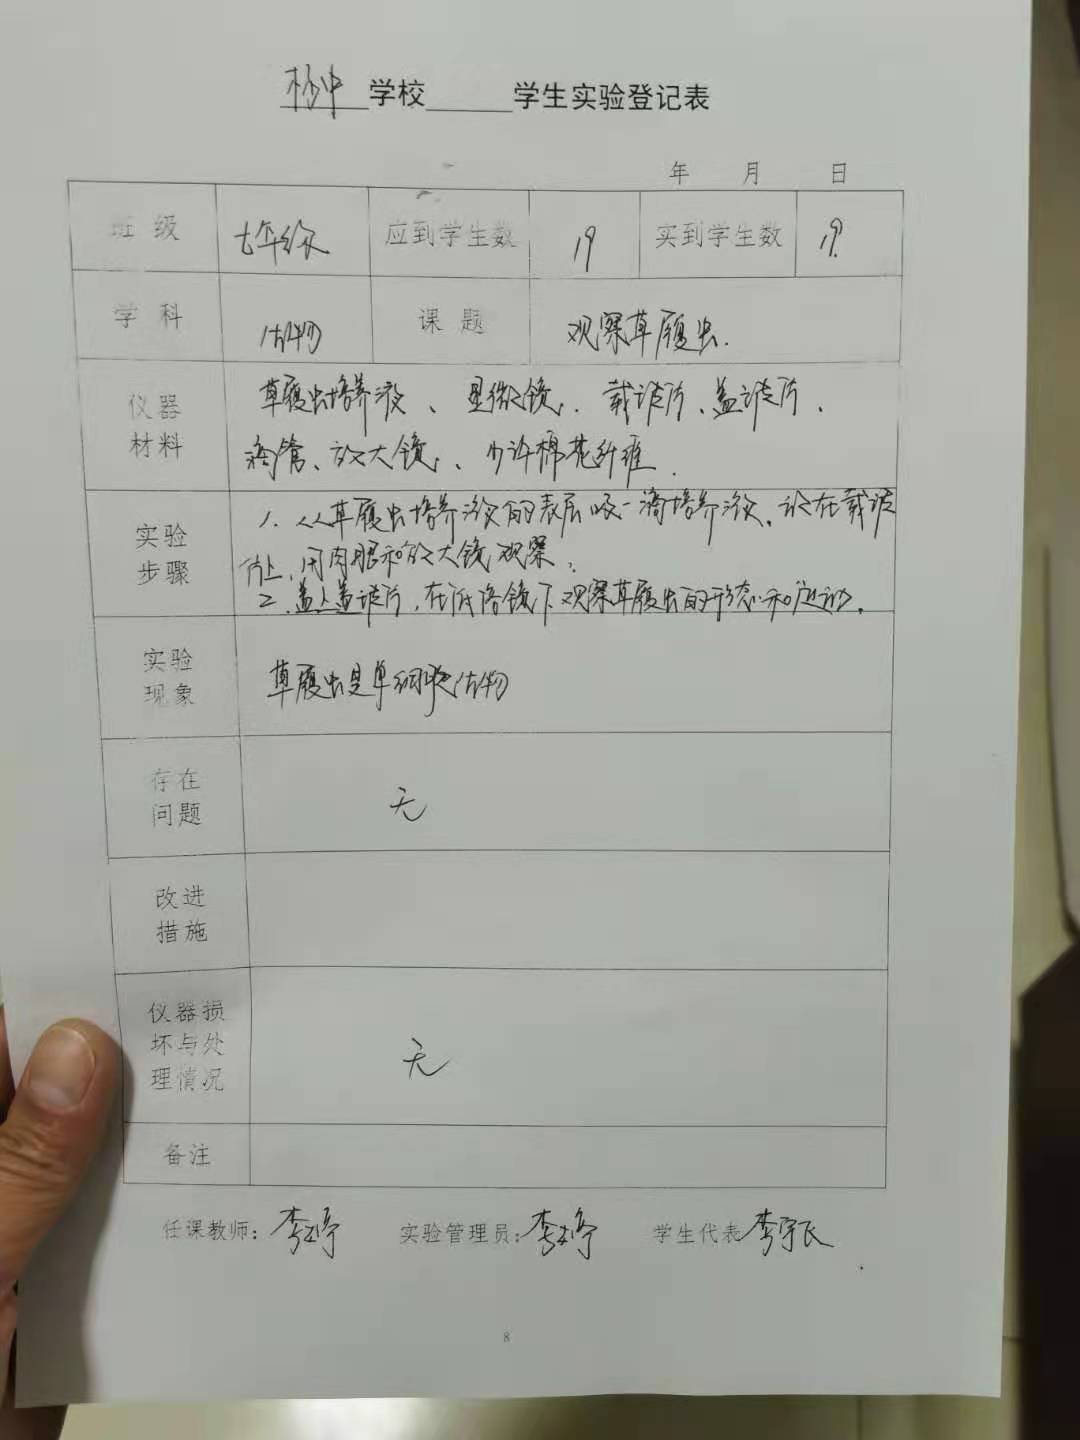 杨中学校______学生实验登记表
年 月 日
班 级 七年级 应到学生数 19 实到学生数 19.
学 科 生物 课 题 观察草履虫.
仪器材料 草履虫培养液、显微镜、载玻片、盖玻片、
滴管、放大镜、少许棉花纤维.
实验步骤 1. 从草履虫培养液的表层吸一滴培养液,放在载玻
片上,用肉眼和放大镜观察.
2. 盖上盖玻片,在低倍镜下观察草履虫的形态和运动.
实验现象 草履虫是单细胞生物
存在问题 无
改进措施
仪器损坏与处理情况 无
备注
任课教师: 李婷 实验管理员: 李婷 学生代表 李宇飞
8